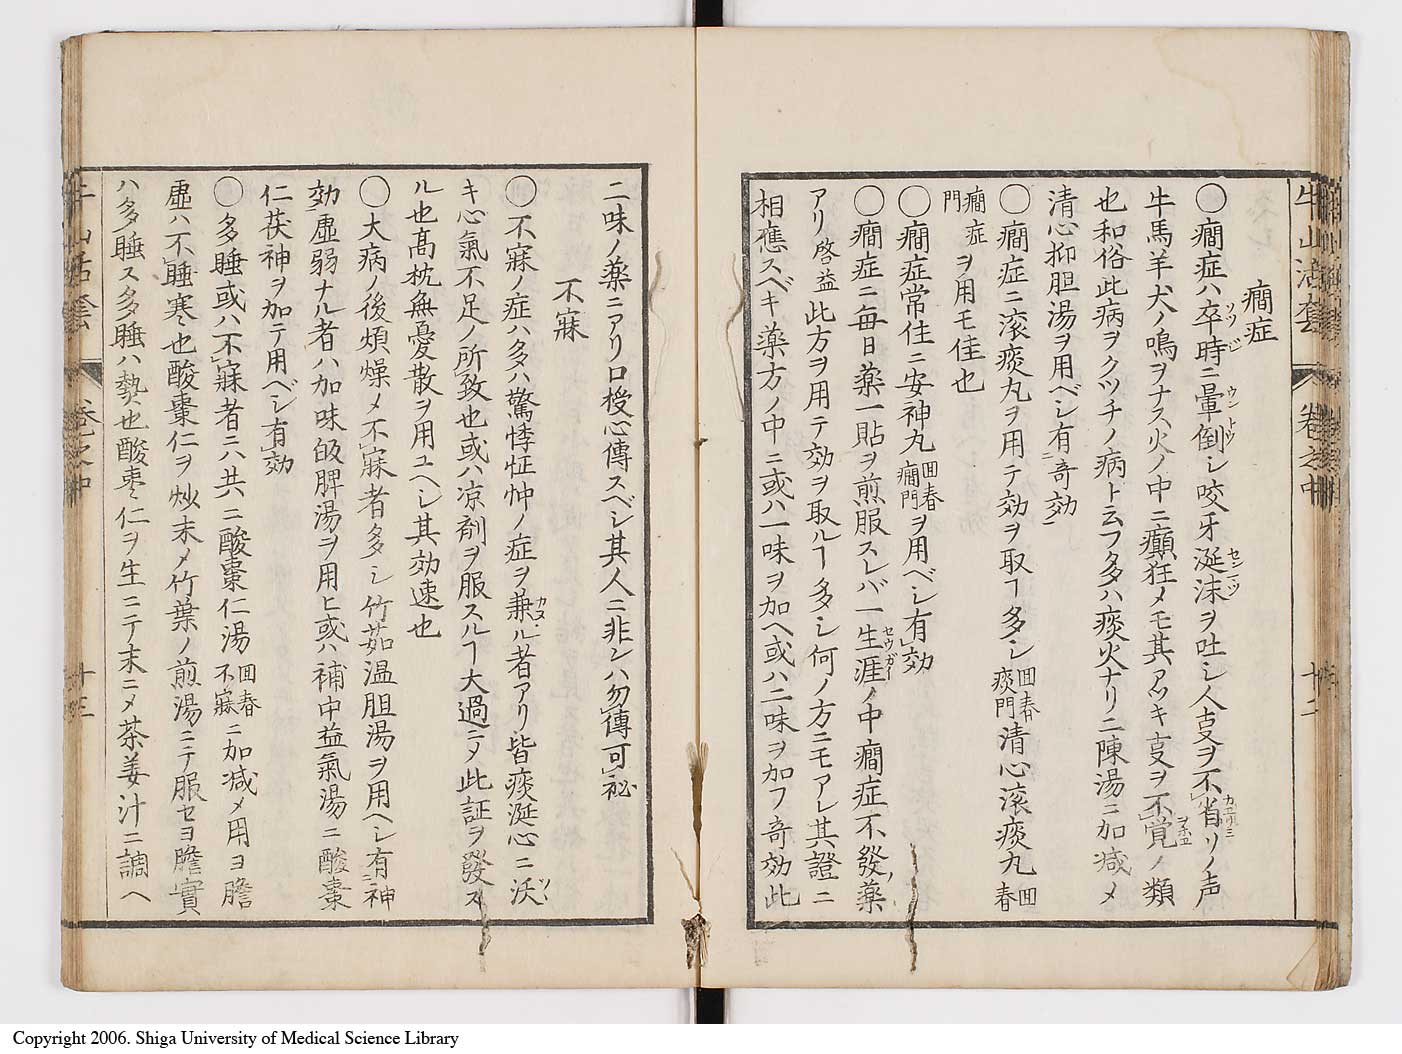 牛山活套 卷之中 十二
癇症
〇癇症ハ卒時ニ暈倒シ咬牙涎沫ヲ吐シ人叓ヲ不省ソノ声
牛馬羊犬ノ鳴ヲナス火ノ中ニ癲狂メモ其アツキ叓ヲ不覚ノ類
也和俗此病ヲクツチノ病ト云フ多ハ痰火ナリ二陳湯ニ加減メ
清心抑胆湯ヲ用ベシ有奇効
〇癇症ニ滚痰丸ヲ用テ効ヲ取ヿ多シ回春痰門清心滚痰丸回春
癇症門ヲ用モ佳也
〇癇症常住ニ安神丸回春癇門ヲ用ベシ有効
〇癇症ニ毎日薬一貼ヲ煎服スレバ一生涯ノ中癇症不發薬
アリ啓益此方ヲ用テ効ヲ取ルヿ多シ何ノ方ニモアレ其證ニ
相應スベキ薬方ノ中ニ或ハ一味ヲ加ヘ或ハ二味ヲ加フ奇効此
二味ノ薬ニアリ口授心傳スベシ其人ニ非ンハ勿傳可祕
不寐
〇不寐ノ症ハ多ハ驚悸怔忡ノ症ヲ兼ル者アリ皆痰涎心ニ沃
キ心氣不足ノ所致也或ハ凉剤ヲ服スルヿ大過ニメ此証ヲ發ス
ル也高枕無憂散ヲ用ユヘシ其効速也
〇大病ノ後煩燥メ不寐者多シ竹茹温胆湯ヲ用ヘシ有神
効虚弱ナル者ハ加味皈脾湯ヲ用ヒ或ハ補中益氣湯ニ酸棗
仁茯神ヲ加テ用ベシ有効
〇多睡或ハ不寐者ニハ共ニ酸棗仁湯回春不寐ニ加减メ用ヨ膽
虚ハ不睡寒也酸棗仁ヲ炒末メ竹葉ノ煎湯ニテ服セヨ膽實
ハ多睡ス多睡ハ熱也酸棗仁ヲ生ニテ末ニメ茶姜汁ニ調ヘ
牛山活套 卷之中 十三
Copyright 2006. Shiga University of Medical Science Library